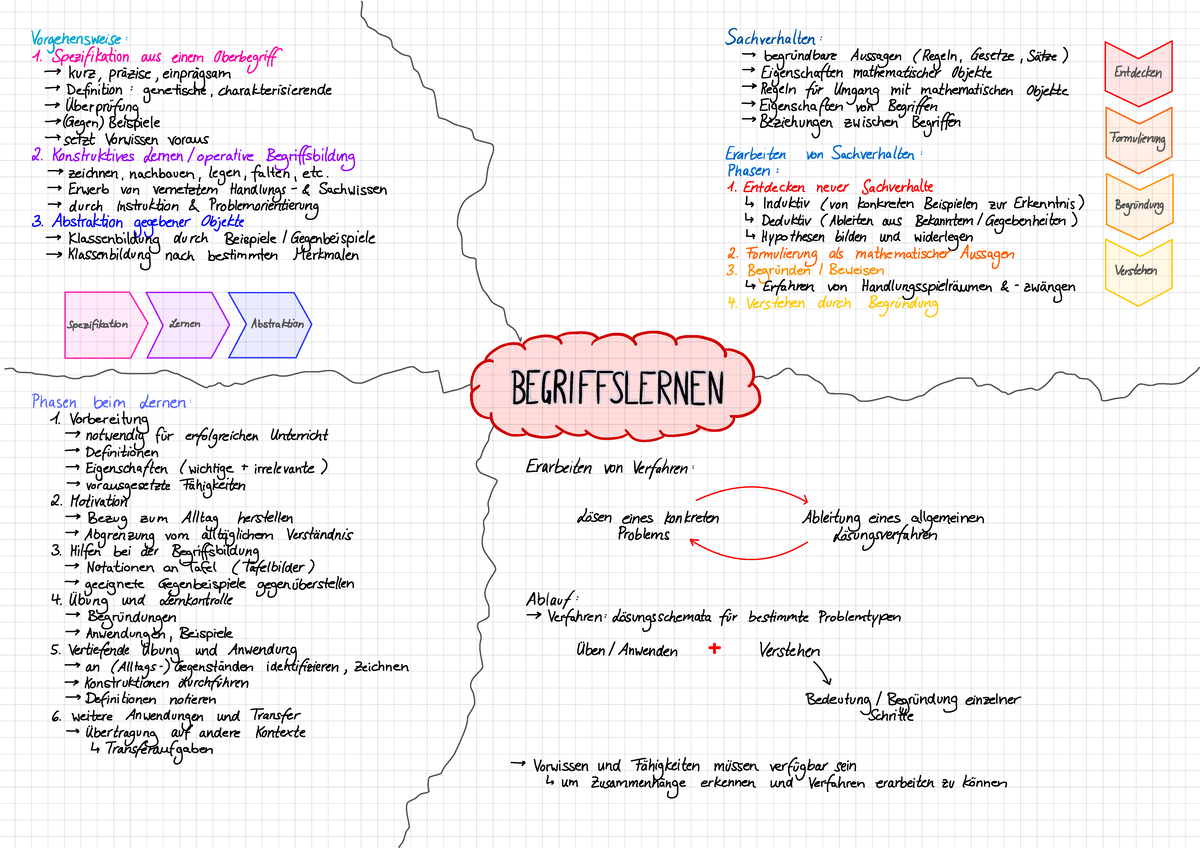 Vorgehensweise:
1. Spezifikation aus einem Oberbegriff
→ kurz, präzise, einprägsam
→ Definition: genetische, charakterisierende
→ Überprüfung
→ (Gegen) Beispiele
→ setzt Vorwissen voraus
2. Konstruktives Lernen / operative Begriffsbildung
→ zeichnen, nachbauen, legen, falten, etc.
→ Erwerb von vernetztem Handlungs- & Sachwissen
→ durch Instruktion & Problemorientierung
3. Abstraktion gegebener Objekte
→ Klassenbildung durch Beispiele / Gegenbeispiele
→ Klassenbildung nach bestimmten Merkmalen
Spezifikation
Lernen
Abstraktion
Sachverhalten:
→ begründbare Aussagen (Regeln, Gesetze, Sätze)
→ Eigenschaften mathematischer Objekte
→ Regeln für Umgang mit mathematischen Objekte
→ Eigenschaften von Begriffen
→ Beziehungen zwischen Begriffen
Erarbeiten von Sachverhalten:
Phasen:
1. Entdecken neuer Sachverhalte
↳ Induktiv (von konkreten Beispielen zur Erkenntnis)
↳ Deduktiv (Ableiten aus Bekanntem / Gegebenheiten)
↳ Hypothesen bilden und widerlegen
2. Formulierung als mathematischer Aussagen
3. Begründen / Beweisen
↳ Erfahren von Handlungsspielräumen & -zwängen
4. Verstehen durch Begründung
Entdecken
Formulierung
Begründung
Verstehen
BEGRIFFSLERNEN
Phasen beim Lernen:
1. Vorbereitung
→ notwendig für erfolgreichen Unterricht
→ Definitionen
→ Eigenschaften (wichtige + irrelevante)
→ vorausgesetzte Fähigkeiten
2. Motivation
→ Bezug zum Alltag herstellen
→ Abgrenzung vom alltäglichem Verständnis
3. Hilfen bei der Begriffsbildung
→ Notationen an Tafel (Tafelbilder)
→ geeignete Gegenbeispiele gegenüberstellen
4. Übung und Lernkontrolle
→ Begründungen
→ Anwendungen, Beispiele
5. Vertiefende Übung und Anwendung
→ an (Alltags-) Gegenständen identifizieren, zeichnen
→ Konstruktionen durchführen
→ Definitionen notieren
6. weitere Anwendungen und Transfer
→ Übertragung auf andere Kontexte
↳ Transferaufgaben
Erarbeiten von Verfahren:
Lösen eines konkreten
Problems
Ableitung eines allgemeinen
Lösungsverfahren
Ablauf:
→ Verfahren: Lösungsschemata für bestimmte Problemtypen
Üben / Anwenden + Verstehen
Bedeutung / Begründung einzelner
Schritte
→ Vorwissen und Fähigkeiten müssen verfügbar sein
↳ um Zusammenhänge erkennen und Verfahren erarbeiten zu können